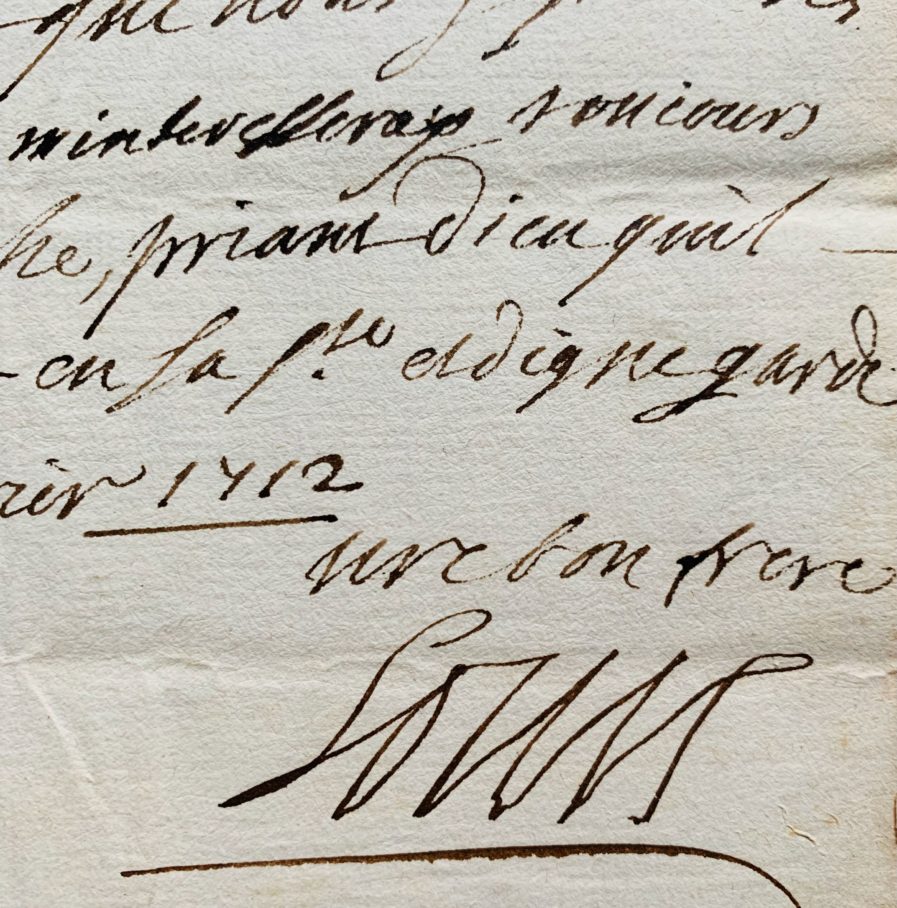 que nous
m'interesseray tousiours
he, priant dieu qu'il
en sa s.te et digne garde
rier 1712
vre bon frere
Louis